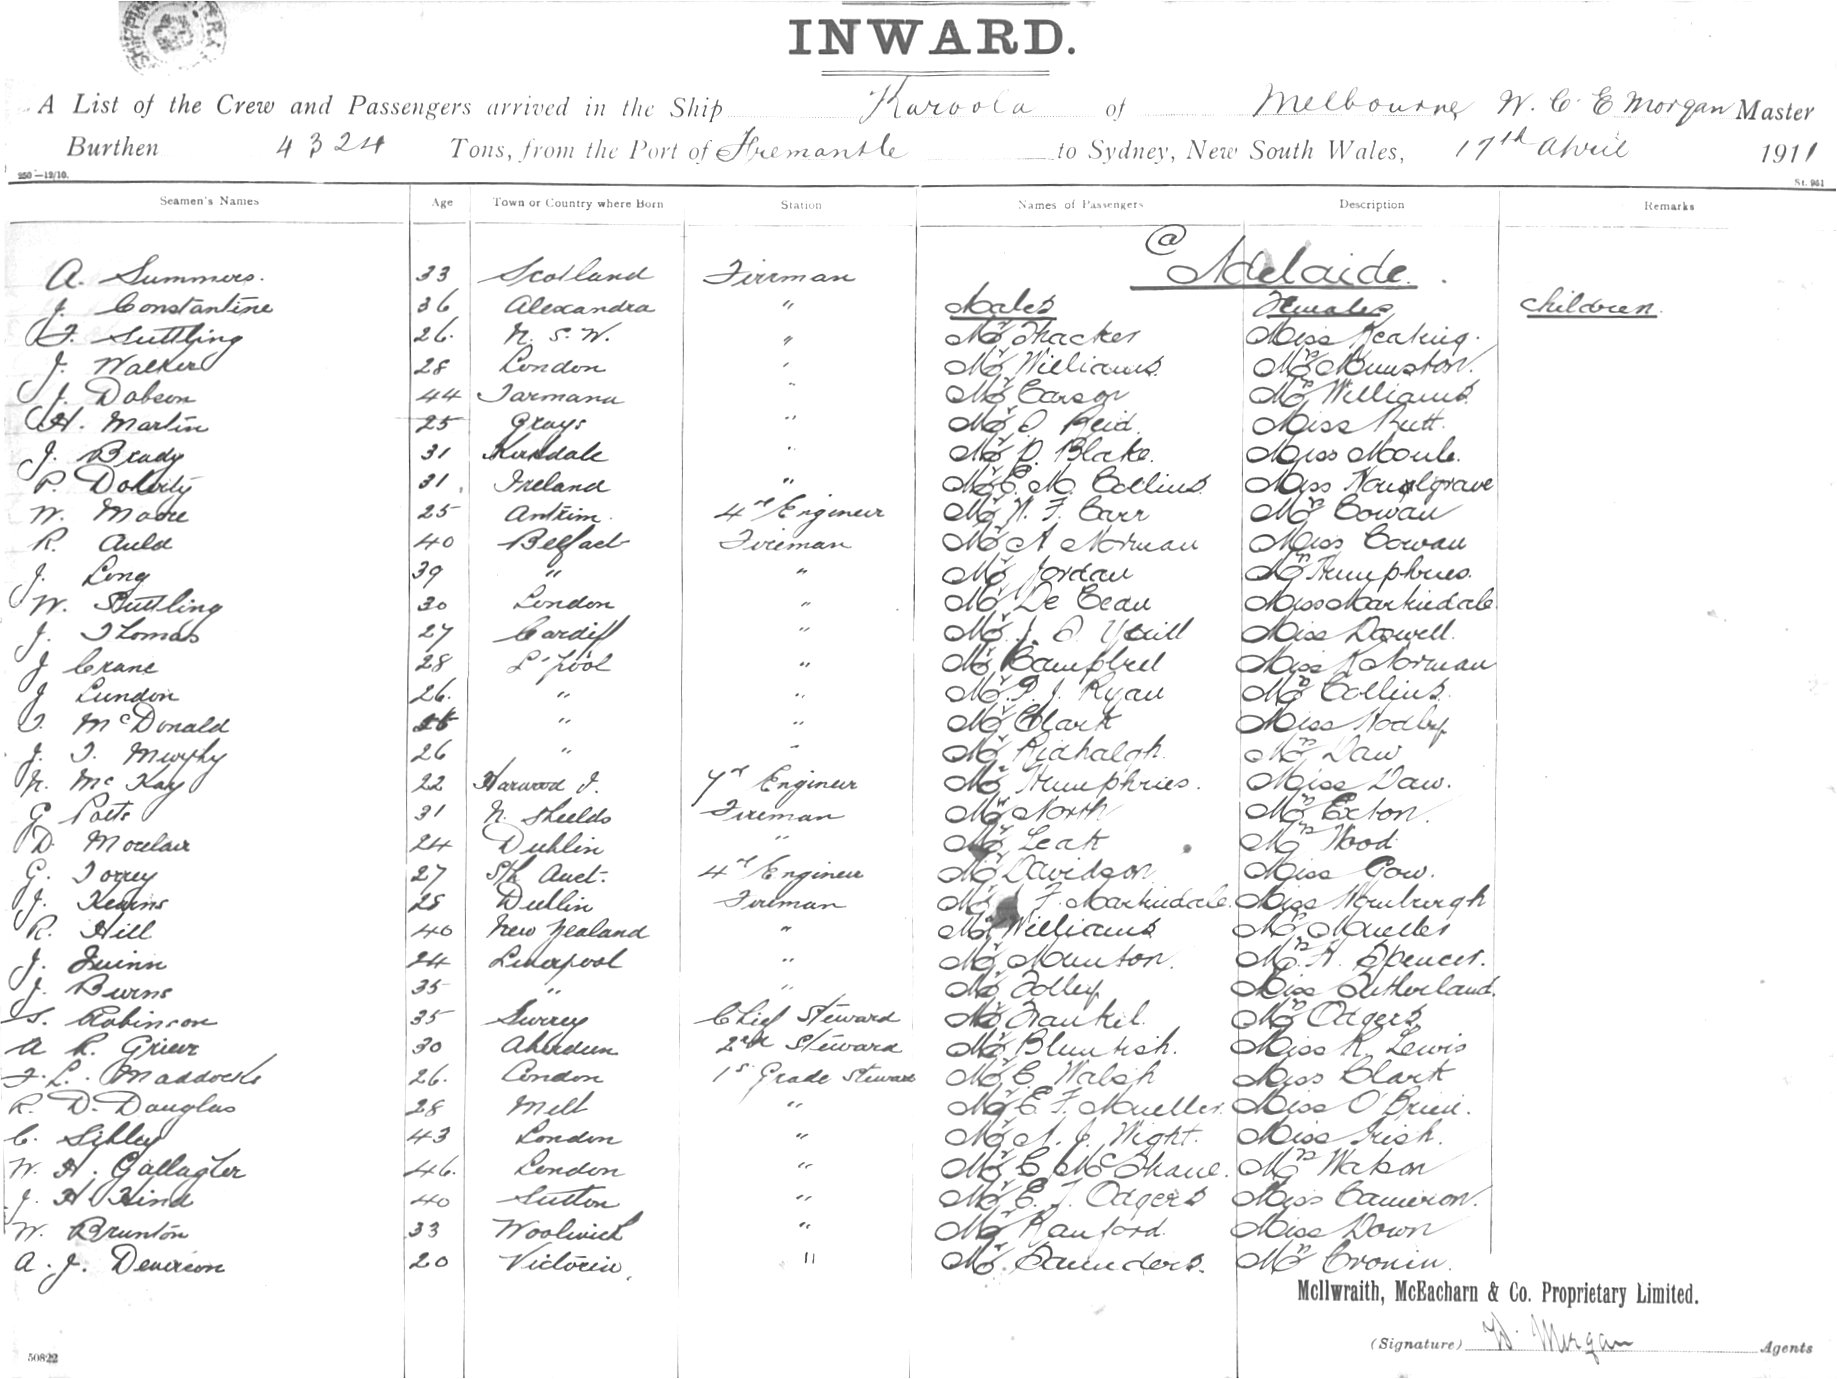 INWARD.
A List of the Crew and Passengers arrived in the Ship Karoola of Melbourne W. C. E Morgan Master
Burthen 4324 Tons, from the Port of Fremantle to Sydney, New South Wales, 17th April 1911
250—12/10. St. 961
Seamen's Names Age Town or Country where Born Station Names of Passengers Description Remarks
@ Adelaide.
A. Summers. 33 Scotland Fireman
J. Constantine 36 Alexandra " Males Females Children.
F. Suttling 26. N. S. W. " Mr Thacker Miss Keating.
J. Walker 28 London " Mr Williams. Mrs
J. Dobson 44 " Mr Carson Mrs Williams.
H. Martin 25 Grays " Mr Reid. Miss Rutt.
J. Brady 31 Kirkdale " Mr P. Blake. Miss Moule.
P. Doherty 31 Ireland " Mr C. M. Collins. Miss
W. Moore 25 Antrim. 4th Engineer Mr W. F. Carr Mrs Cowan
R. Auld 40 Belfast Fireman Mr A Norman Miss Cowan
J. Long 39 " " Mr Jordan Mrs Humphries.
W. Suttling 30 London " Mr De Miss Martindale
J. Thomas 27 Cardiff " Mr J. Miss Dowell.
J Crane 28 L'pool " Mr Campbell Miss K Norman
J Lundon 26. " " Mr P. J. Ryan Mrs Collins.
McDonald " " Mr Clark Miss
J. T. Murphy 26 " " Mr Ridhalgh. Mrs Daw
N. McKay 22 Harwood I. 7th Engineer Mr Humphries. Miss Daw.
G Potts 31 N. Shields Fireman Mr North Mrs Exton.
D. 24 Dublin " Mr Leak Mrs Wood
G. Torrey 27 Sth Aust. 4th Engineer Mr Davidson Miss Gow.
J. Kearns 28 Dublin Fireman Mr F. Martindale. Miss
R. Hill 40 New Zealand " Mr Williams Mrs Mueller
J. Quinn 24 Liverpool " Mr Munton. Mrs H. Spencer.
J. Burns 35 " " Mr Folley Miss Sutherland.
S. Robinson 35 Surrey Chief Steward Mr Frankel. Mrs Odgers
A R. Grieve 30 Aberdeen 2nd Steward Mr Miss R. Lewis
F. L. Maddocks 26. London 1st Grade Steward Mr C. Walsh Miss Clark
R. D. Douglas 28 Melb " Mr E F. Mueller. Miss O'Brien.
C. Sibley 43 London " Mr A. J. Wight. Miss Irish.
W. H. Gallagher 46. London " Mr C McShane. Mrs Watson
J. H Hind 40 Sutton " Mr E. J. Odgers Miss Cameron.
W. Brunton 33 Woolwich " Mr Ranford. Miss Down
A. J. Denerson 20 Victoria. " Mr. Saunders. Mrs Cronin.
McIlwraith, McEacharn & Co. Proprietary Limited.
(Signature) W. Morgan Agents
50822